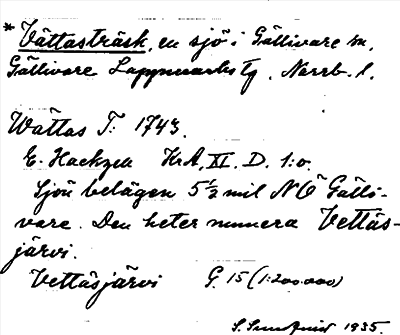 * Vättasträsk, en sjö i Gällivare sn,
Gällivare Lappmarks Tg. Norrb. l.
Wättas T: 1743.
E. Hackzell KrA, XI. D. 1:o.
Sjön belägen 5 1/2 mil NÖ Gälli-
vare. Den heter numera Vettäs-
järvi.
Vettäsjärvi G. 15 (1:200.000)
1935.